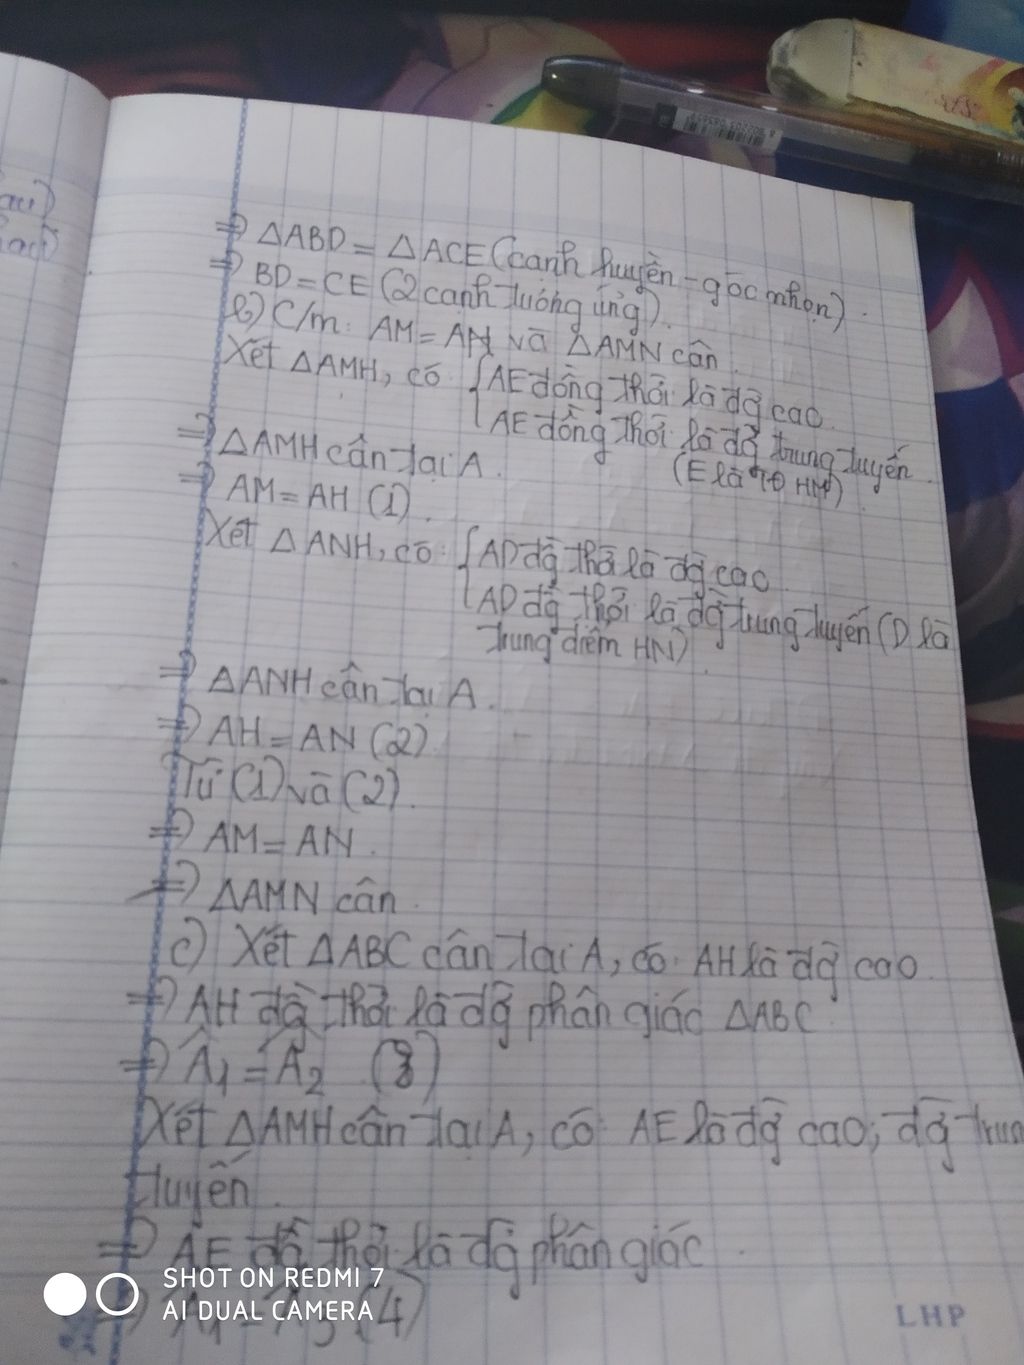 ⇒ ΔABD = ΔACE (cạnh huyền - góc nhọn).
⇒ BD = CE (2 cạnh tương ứng).
b) C/m: AM = AN và ΔAMN cân.
Xét ΔAMH, có: { AE đồng thời là đg cao.
AE đồng thời là đg trung tuyến.
(E là TĐ HM)
⇒ ΔAMH cân tại A.
⇒ AM = AH (1).
Xét ΔANH, có: { AD đg thời là đg cao
AD đg thời là đg trung tuyến (D là
trung điểm HN).
⇒ ΔANH cân tại A.
⇒ AH = AN (2).
Từ (1) và (2).
⇒ AM = AN.
⇒ ΔAMN cân.
c) Xét ΔABC cân tại A, có: AH là đg cao.
⇒ AH đg thời là đg phân giác ΔABC.
⇒ Â1 = Â2 (3)
Xét ΔAMH cân tại A, có: AE là đg cao, đg
tuyến.
⇒ AE đg thời là đg phân giác.
⇒ (4)
SHOT ON REDMI 7
AI DUAL CAMERA
LHP